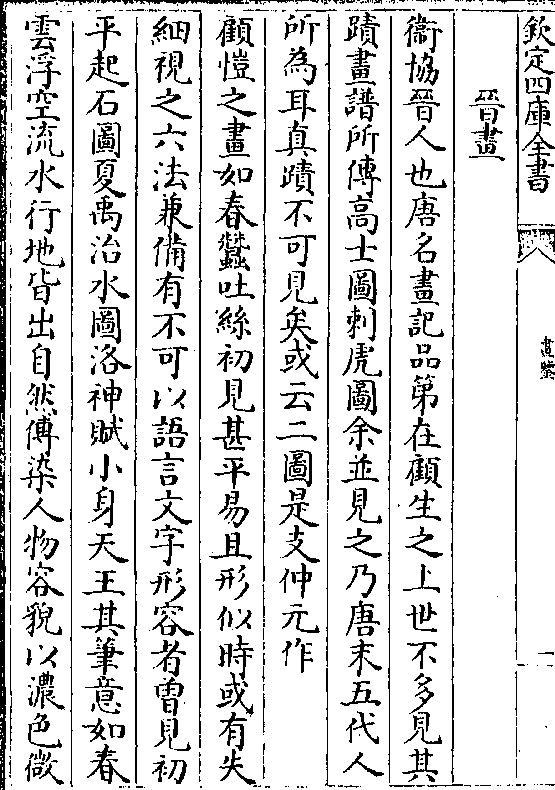 欽定四庫全書
畫鑒
一
晉畫
衛協晉人也唐名畫記品第在顧生之上世不多見其
蹟畫譜所傳高士圖刺虎圖余並見之乃唐末五代人
所為耳真蹟不可見矣或云二圖是支仲元作
顧愷之畫如春蠶吐絲初見甚平易且形似時或有失
細視之六法兼備有不可以語言文字形容者曽見初
平起石圖夏禹治水圖洛神賦小身天王其筆意如春
雲浮空流水行地皆出自然傅染人物容貌以濃色微